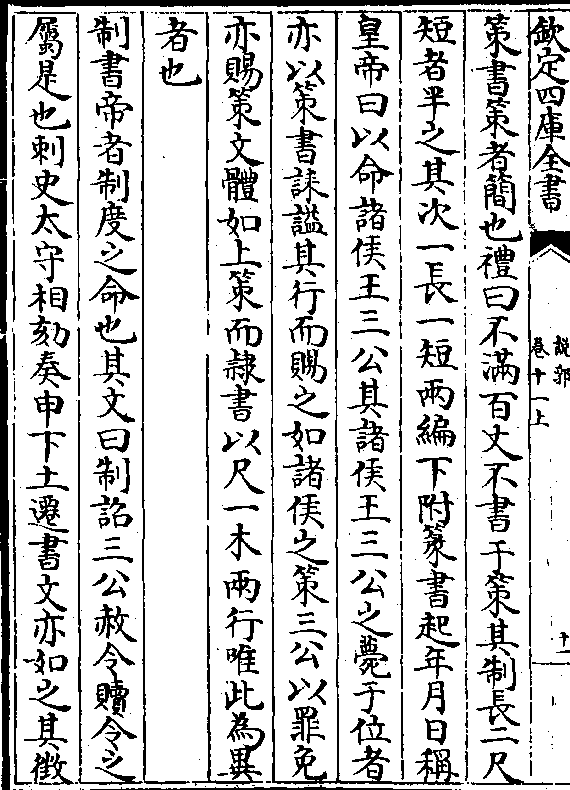 欽定四庫全書
說郛
卷十一上
十一
策書策者簡也禮曰不滿百丈不書于策其制長二尺
短者半之其次一長一短兩編下附篆書起年月日稱
皇帝曰以命諸侯王三公其諸侯王三公之薨于位者
亦以策書誄諡其行而賜之如諸侯之策三公以罪免
亦賜策文體如上策而隸書以尺一木兩行唯此為異
者也
制書帝者制度之命也其文曰制詔三公赦令贖令之
屬是也刺史太守相劾奏申下土遷書文亦如之其徵